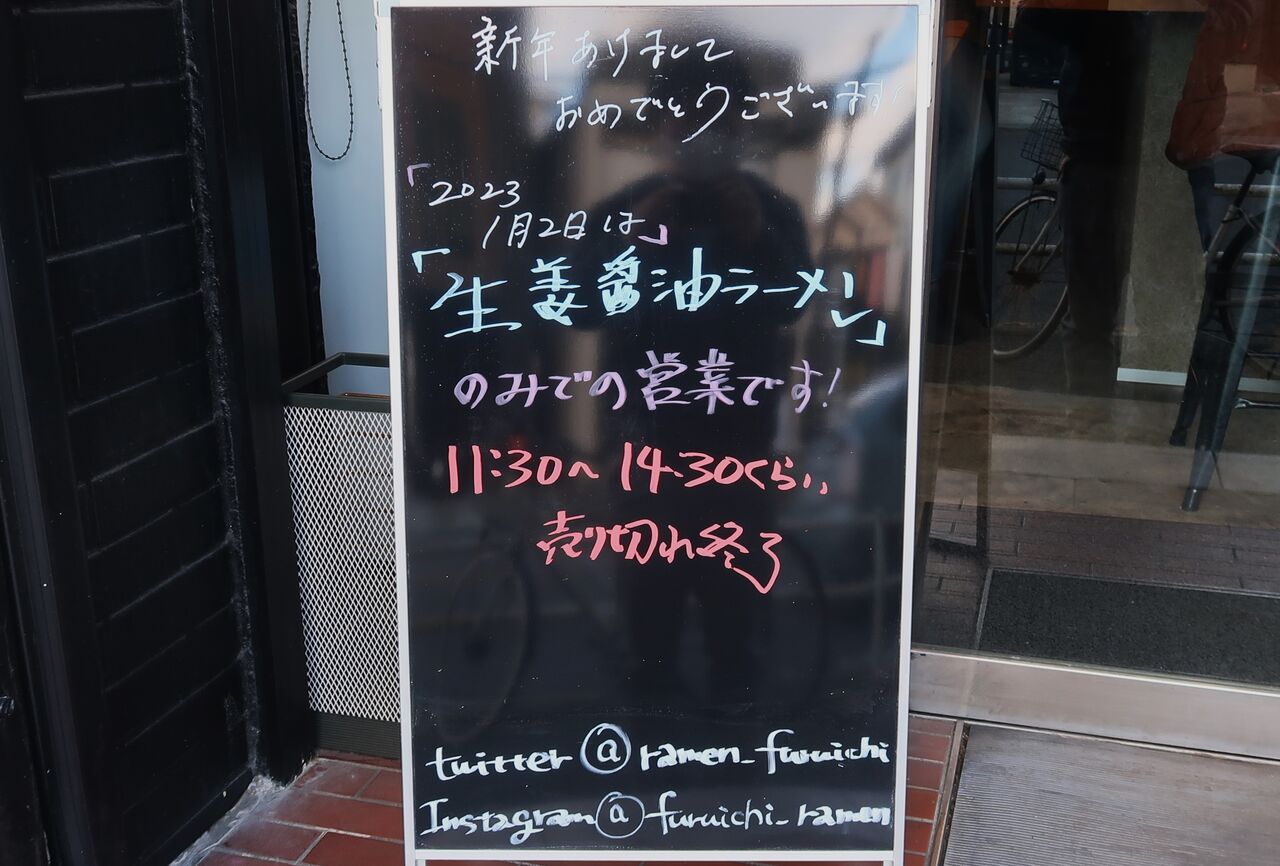 新年あけまして
おめでとうございます
「2023
1月2日は」
「生姜醤油ラーメン」
のみでの営業です!
11:30〜14:30くらい
売り切れ終了
twitter @ ramen_furuichi
Instagram @ furuichi_ramen